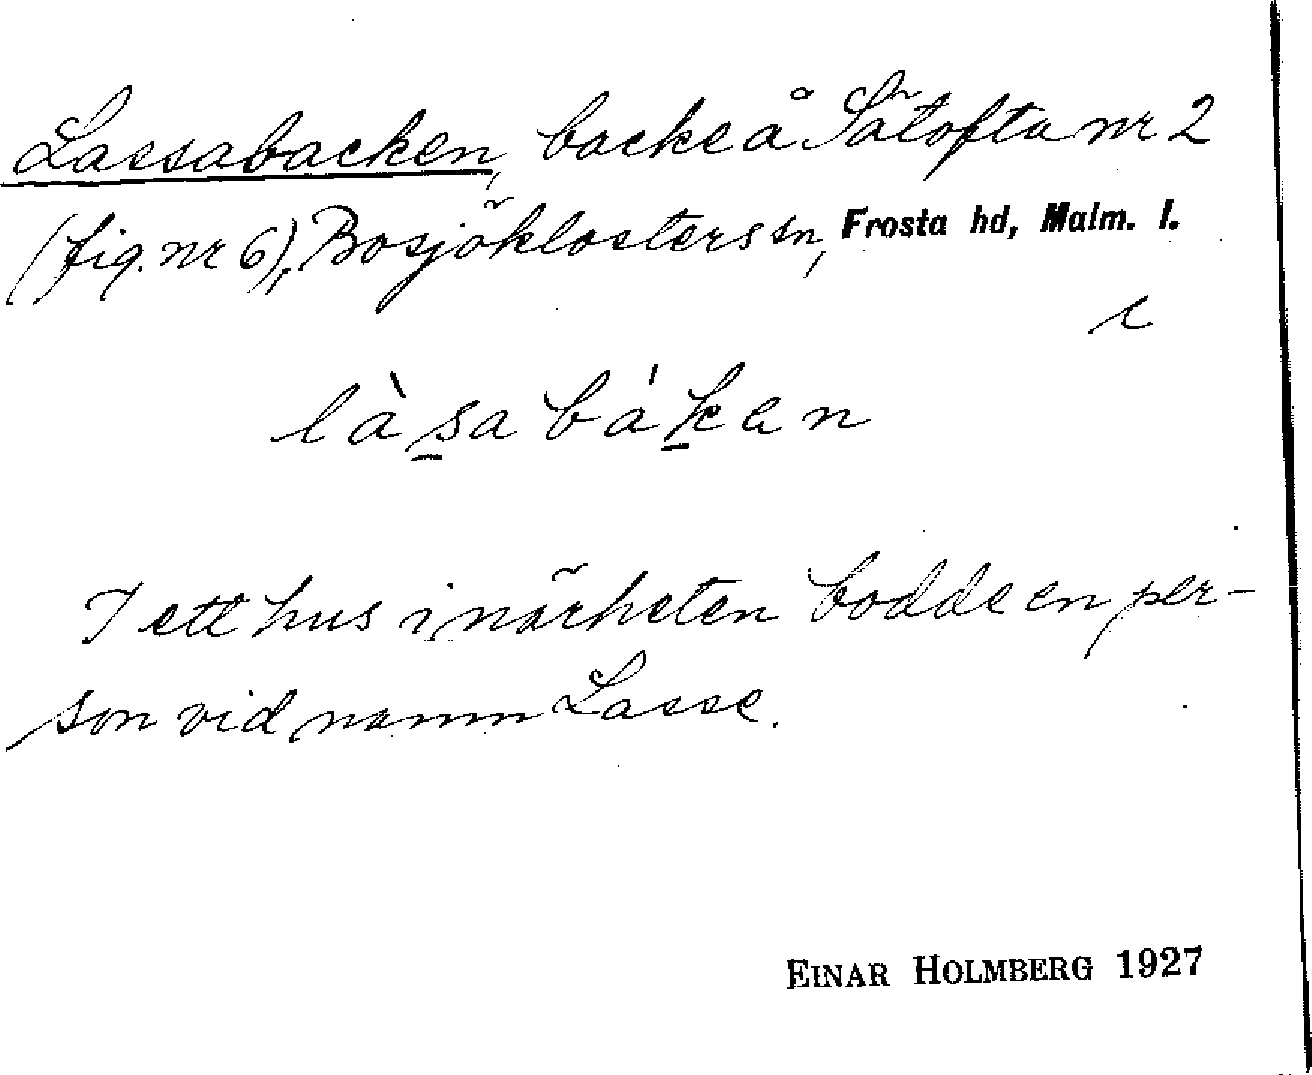 Lassabacken, backe å Sätofta nr 2
(fig. nr 6), Bosjöklosters sn, Frosta hd, Malm. l.
c
làsa bákan
I ett hus i närheten bodde en per-
son vid namn Lasse.
EINAR HOLMBERG 1927